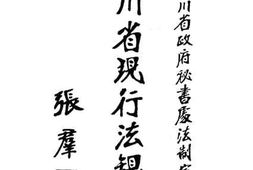 川省政府秘書處法制室
川省現行法規
張羣